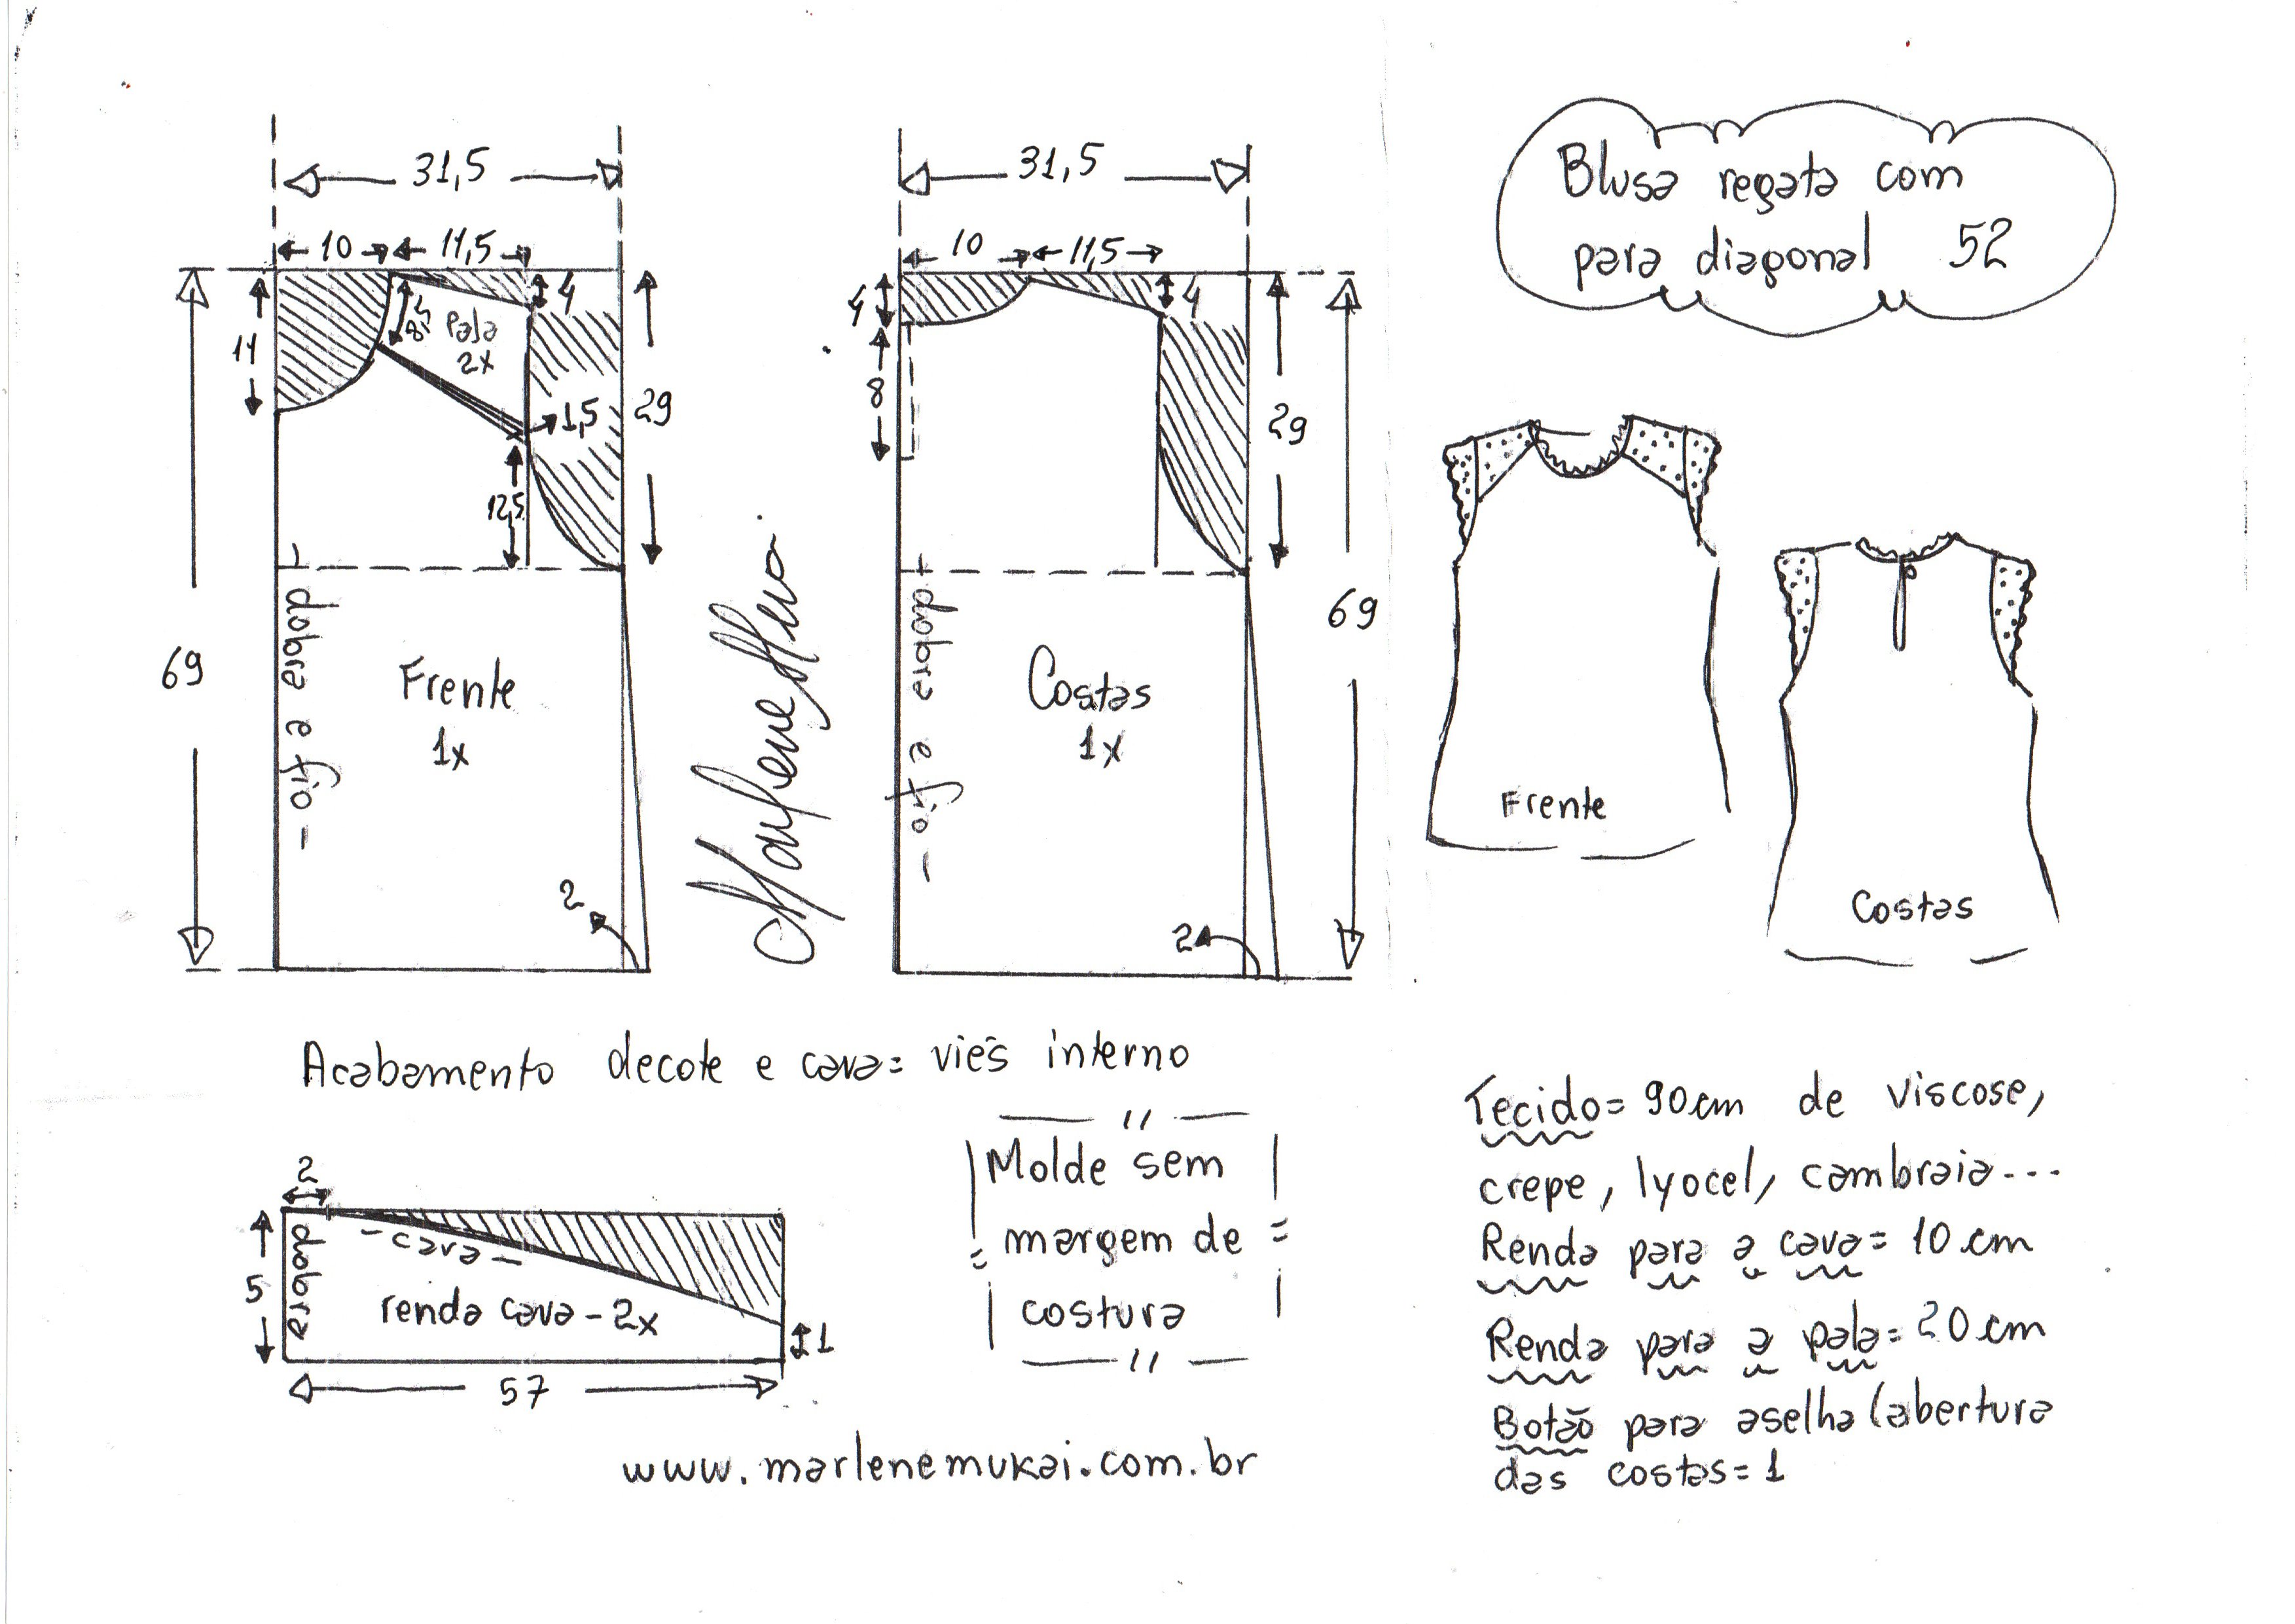 31,5
10
11,5
4
11
8,5
Pala
2x
1,5
29
12,5
69
- dobra e fio -
Frente
1x
2
Marlene Mukai
31,5
10
11,5
4
4
8
29
69
dobra e fio -
Costas
1x
2
Blusa regata com
para diagonal 52
Frente
Costas
Acabamento decote e cava= viés interno
2
5
dobra
- cava -
renda cava - 2x
1
57
Molde sem
margem de
costura
www.marlenemukai.com.br
Tecido= 90cm de viscose,
crepe, lyocel, cambraia...
Renda para a cava= 10 cm
Renda para a pala= 20 cm
Botão para aselha (abertura
das costas= 1